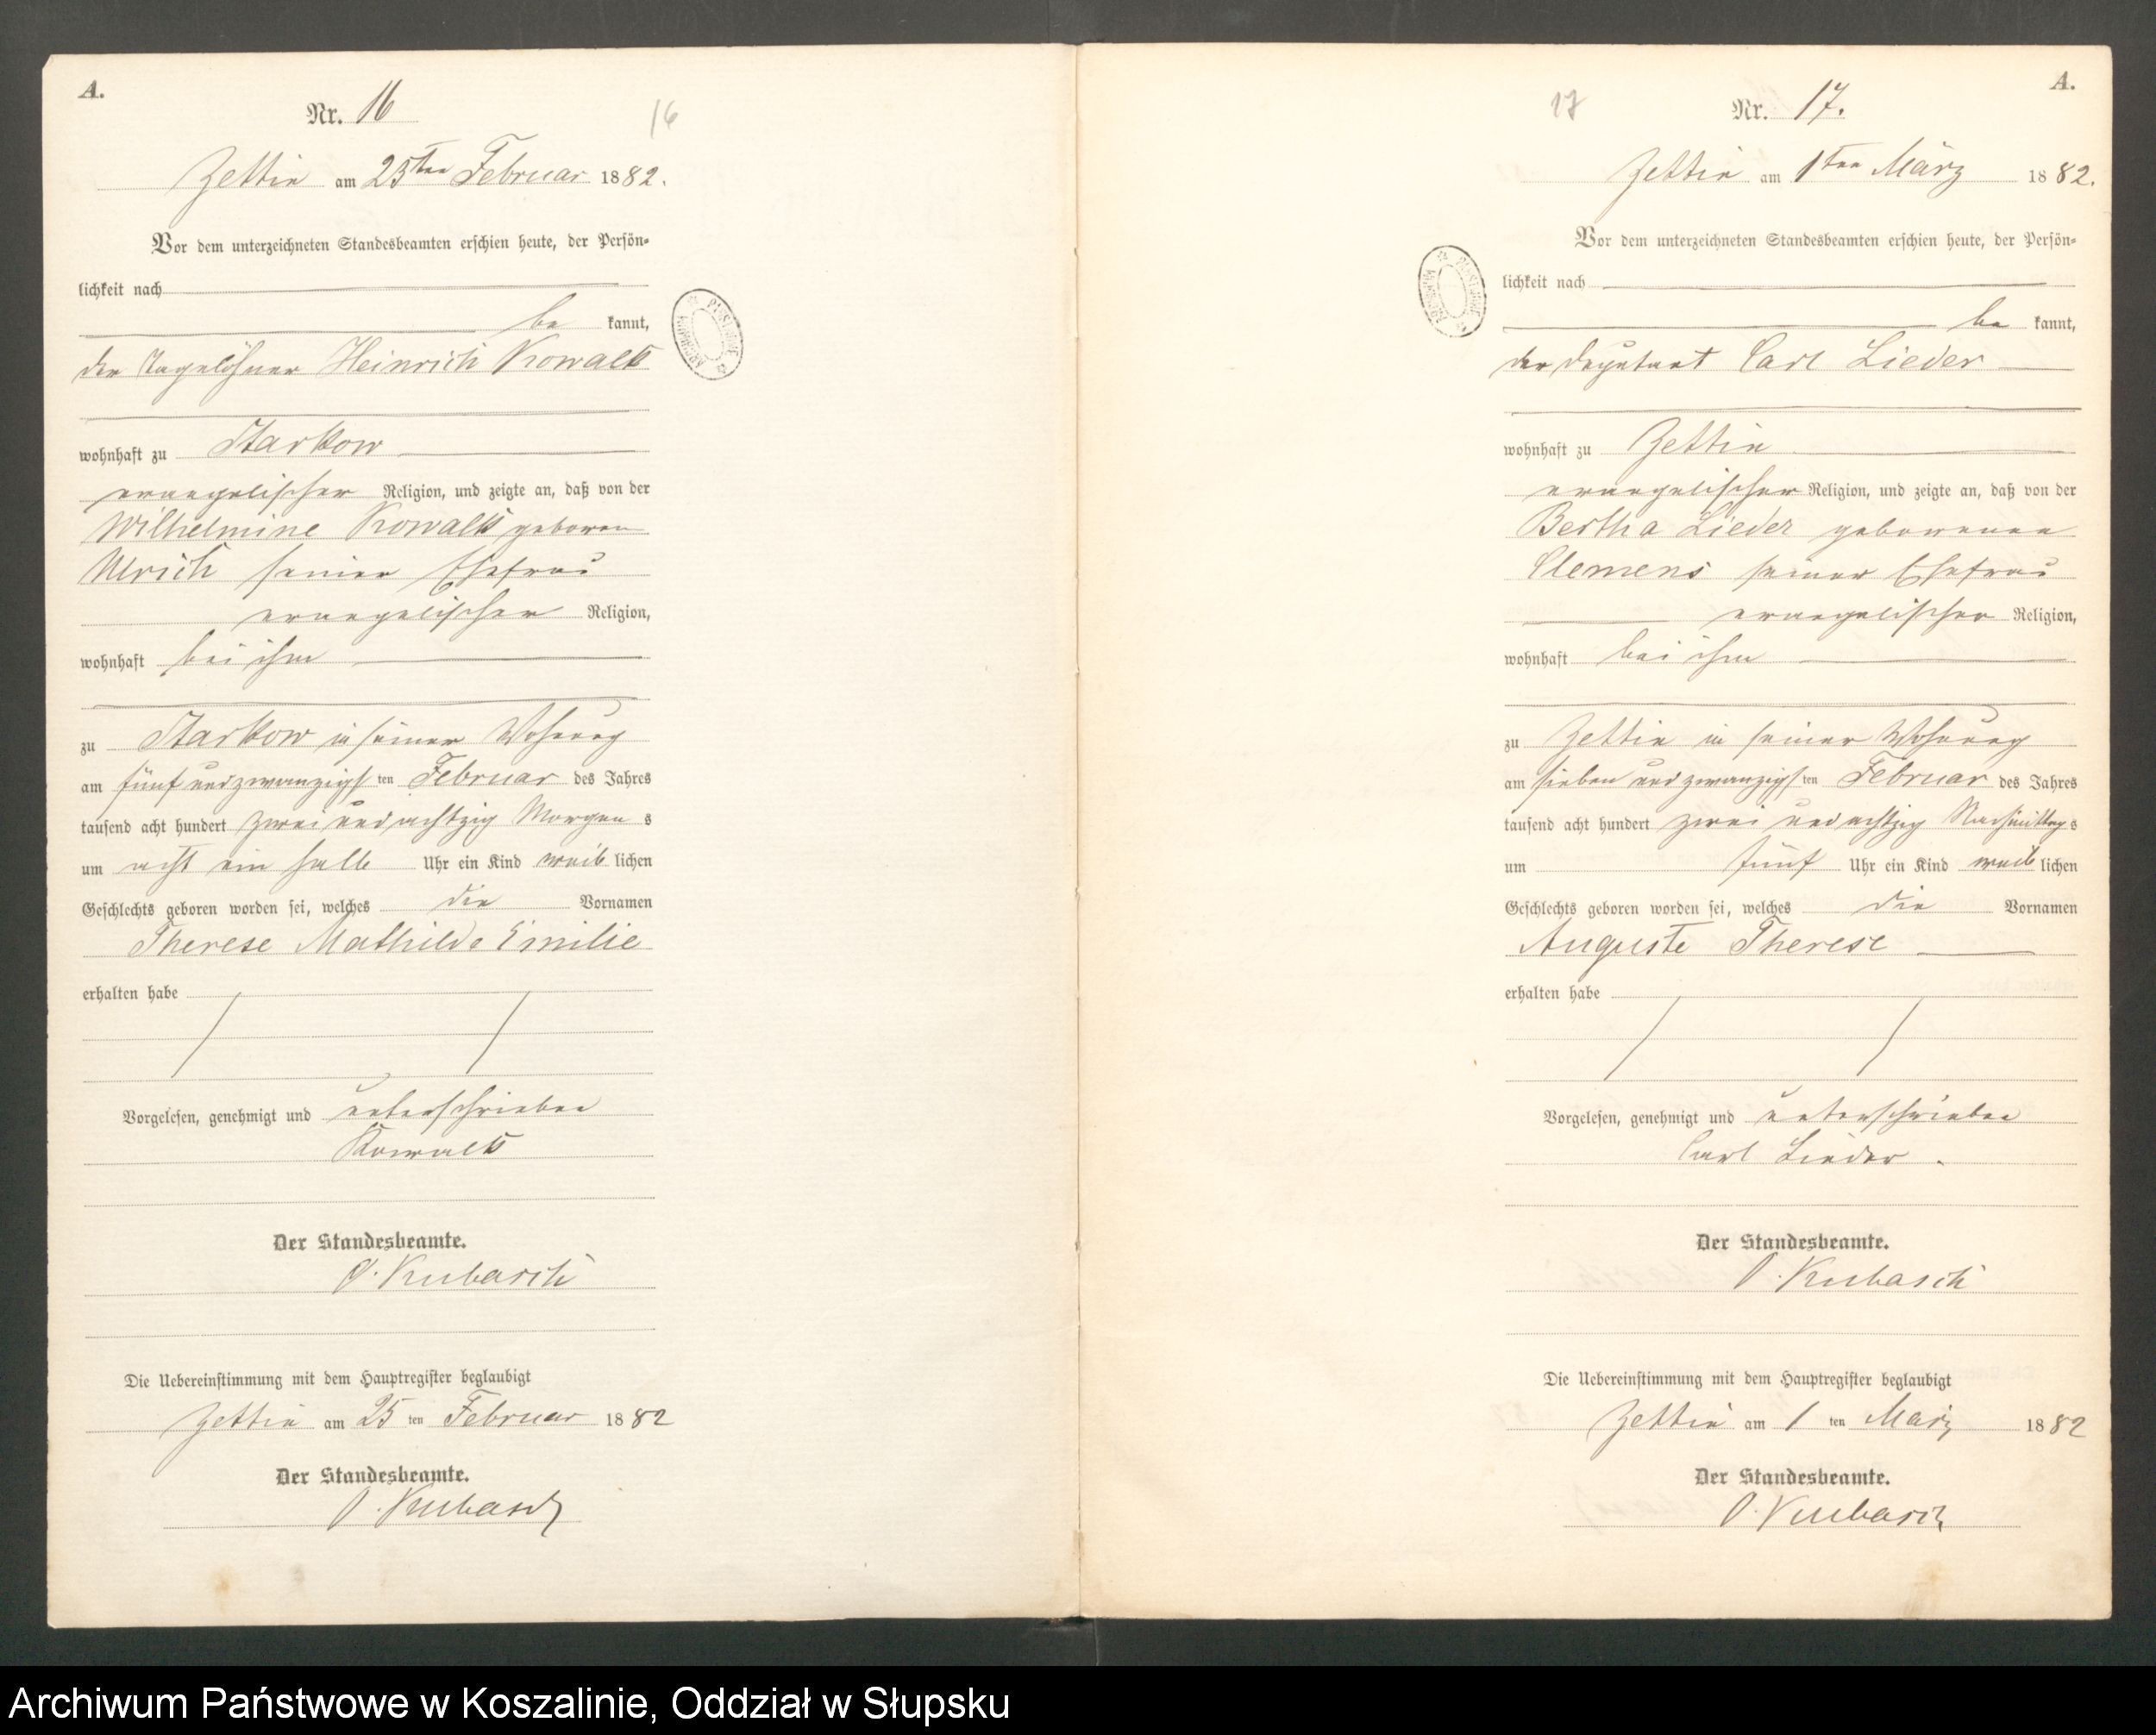 A.
Nr. 16
16
Zettin am 25ten Februar 1882.
Vor dem unterzeichneten Standesbeamten erschien heute, der Persön-
lichkeit nach
be kannt,
der Tagelöhner Heinrich Kowalk
wohnhaft zu Starkow
evangelischer Religion, und zeigte an, daß von der
Wilhelmine Kowalk geboren
Ulrich seiner Ehefrau
evangelischer Religion,
wohnhaft bei ihm
zu Starkow in seiner Wohnung
am fünf und zwanzigsten Februar des Jahres
tausend acht hundert zwei und achtzig Morgens
um acht ein halb Uhr ein Kind weiblichen
Geschlechts geboren worden sei, welches die Vornamen
Therese Mathilde Emilie
erhalten habe
Vorgelesen, genehmigt und unterschrieben
Kowalk
Der Standesbeamte.
O. Kubasch
Die Uebereinstimmung mit dem Hauptregister beglaubigt
Zettin am 25 ten Februar 1882
Der Standesbeamte.
O. Kubasch
A.
17
Nr. 17.
Zettin am 1ten März 1882.
Vor dem unterzeichneten Standesbeamten erschien heute, der Persön-
lichkeit nach
be kannt,
der Deputant Carl Lieder
wohnhaft zu Zettin
evangelischer Religion, und zeigte an, daß von der
Bertha Lieder geborenen
Clemens seiner Ehefrau
evangelischer Religion,
wohnhaft bei ihm
zu Zettin in seiner Wohnung
am sieben und zwanzigsten Februar des Jahres
tausend acht hundert zwei und achtzig Nachmittags
um fünf Uhr ein Kind weiblichen
Geschlechts geboren worden sei, welches die Vornamen
Auguste Therese
erhalten habe
Vorgelesen, genehmigt und unterschrieben
Carl Lieder.
Der Standesbeamte.
O. Kubasch
Die Uebereinstimmung mit dem Hauptregister beglaubigt
Zettin am 1 ten März 1882
Der Standesbeamte.
O. Kubasch
Archiwum Państwowe w Koszalinie, Oddział w Słupsku